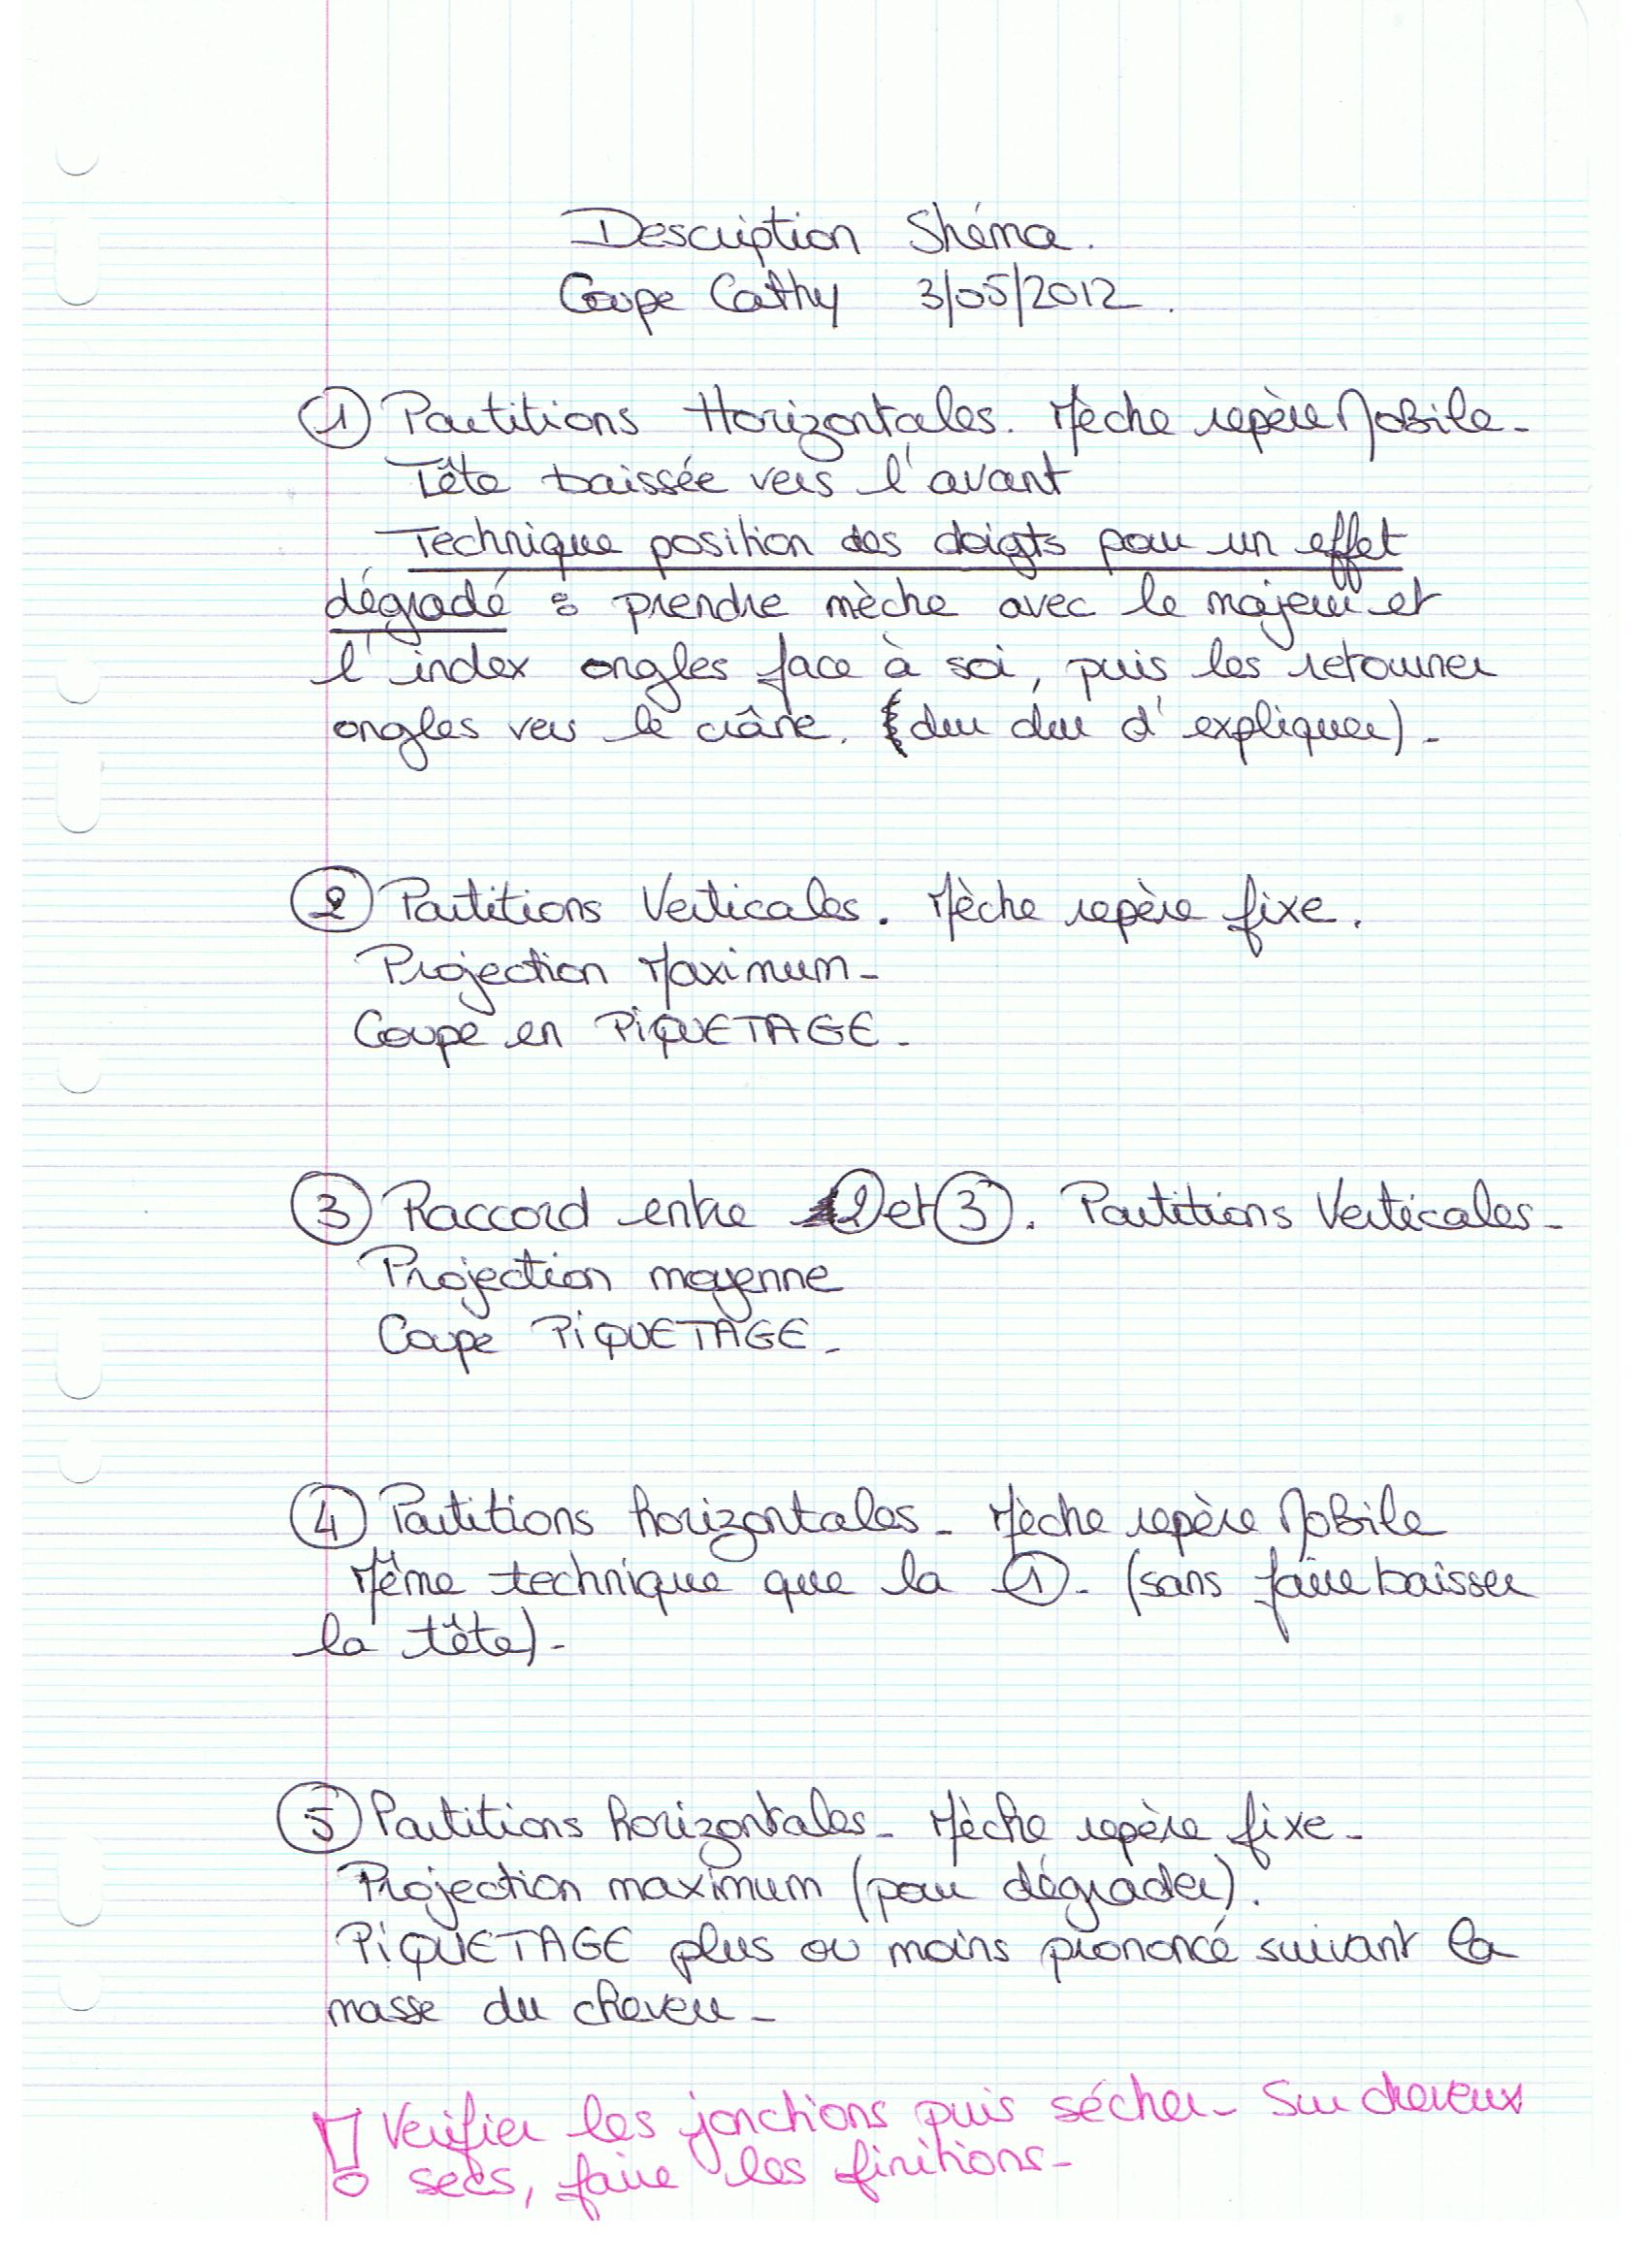 Description Shéma.
Coupe Cathy 3/05/2012.
① Partitions Horizontales. Mèche repère Mobile-
Tête baissée vers l'avant
Technique position des doigts pour un effet
dégradé : prendre mèche avec le majeur et
l'index ongles face à soi, puis les retourner
ongles vers le crâne. (dur dur d'expliquer)-
② Partitions Verticales. Mèche repère fixe.
Projection Maximum-
Coupe en PiQUETAGE.
③ Raccord entre ② et ③. Partitions Verticales-
Projection moyenne
Coupe PiQUETAGE-
④ Partitions horizontales- Mèche repère Mobile
Même technique que la ①- (sans faire baisser
la tête)-
⑤ Partitions horizontales- Mèche repère fixe-
Projection maximum (pour dégrader).
PiQUETAGE plus ou moins prononcé suivant la
masse du cheveu-
! Verifier les jonctions puis sécher- Sur cheveux
secs, faire les finitions-